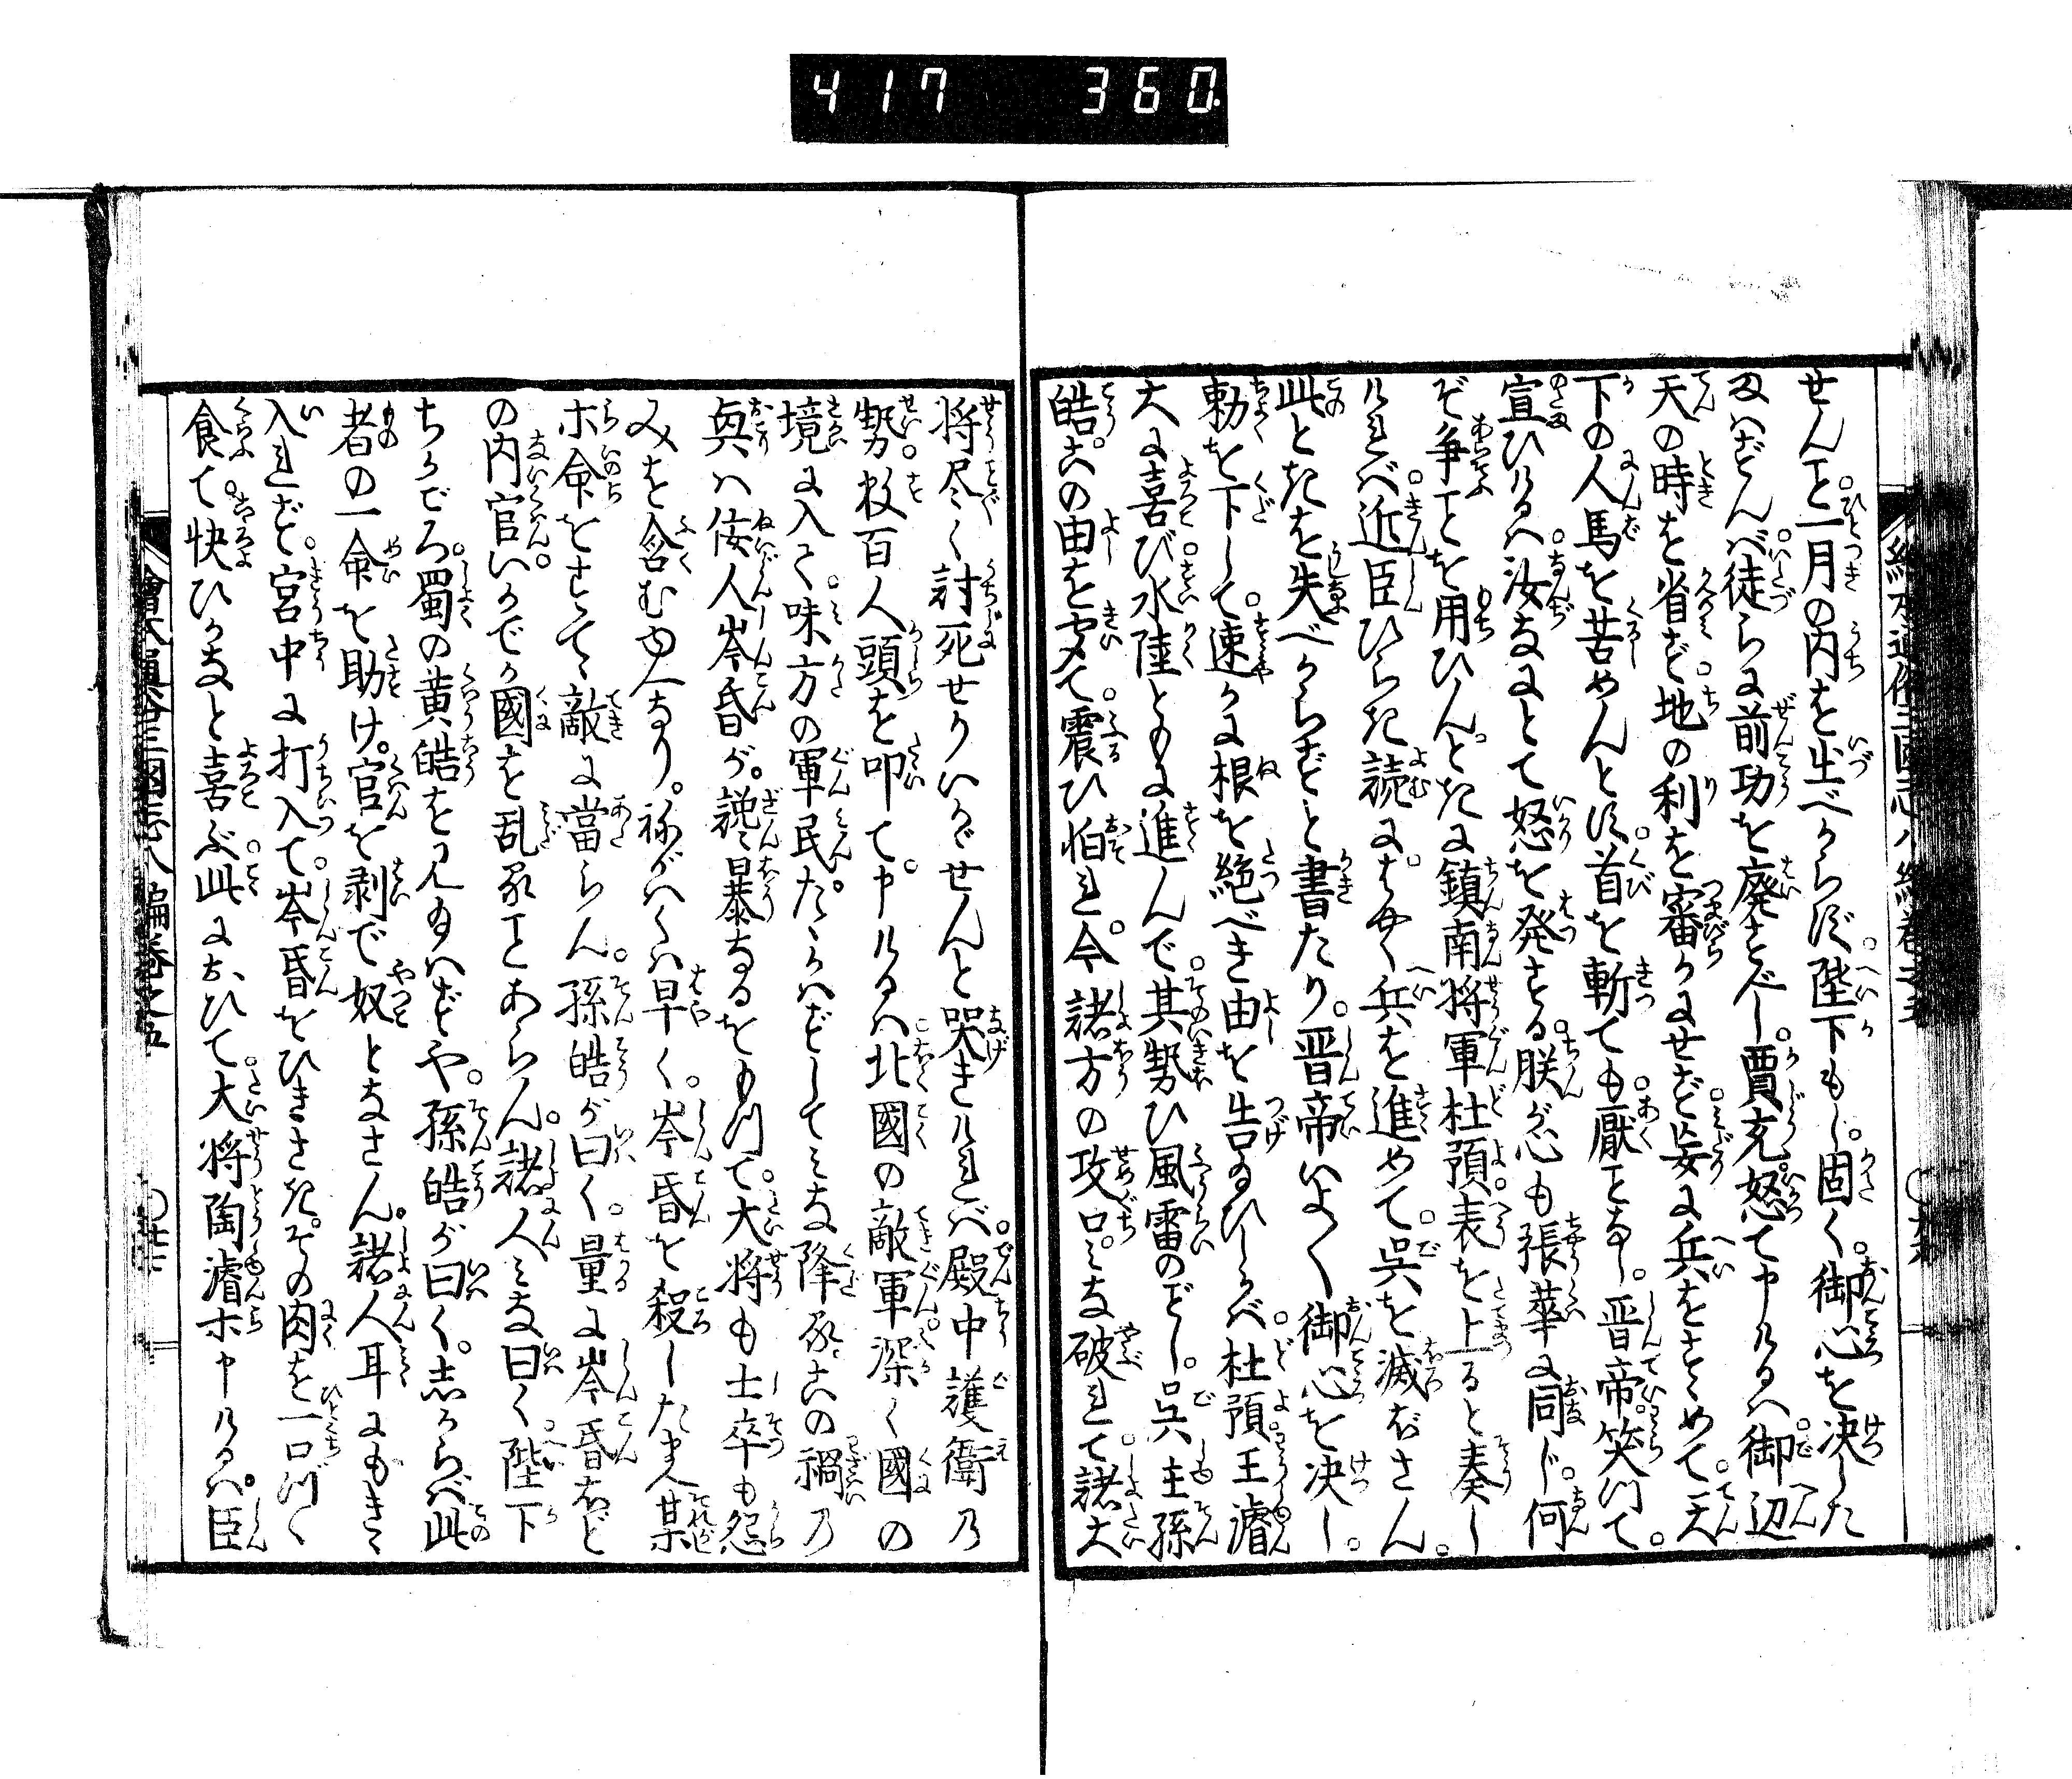 417 360
せんこと一月の内を出べからず陛下もし固く御心を決した
まはずんば徒らに前功を廃すべし賈充怒て申けるは御辺
天の時を省ず地の利を審かにせず妄に兵をすゝめて天
下の人馬を苦めんとす首を斬ても厭ことなし晋帝笑つて
宣ひけるは汝なにとて怒を発する朕が心も張華に同じ何
ぞ争ことを用ひんときに鎮南将軍杜預表を上ると奏し
ければ近臣ひらき読によく兵を進めて呉を滅ぼさん
此ときを失べからずと書たり晋帝いよ〱御心を決し
勅を下して速かに根を絶べき由を告給ひしかば杜預王濬
大に喜び水陸ともに進んで其勢ひ風雷のごとし呉主孫
皓この由を聞て震ひ怕れ今諸方の攻口みな破れて諸大
将尽く討死せりいかゞせんと哭きければ殿中護衛乃
勢数百人頭を叩て申けるは北國の敵軍深く國の
境に入て味方の軍民たゝかはずしてみな降参この禍乃
興は佞人岑昏が讒暴なるをもつて大将も士卒も怨
みを含むゆへなり祢がはくは早く岑昏を殺したまへ某
等命をすてゝ敵に當らん孫皓が曰く量に岑昏ほど
の内官いかでか國を乱ることあらん諸人みな曰く陛下
ちかごろ蜀の黄皓を見給はずや孫皓が曰く志からば此
者の一命を助け官を剥で奴となさん諸人耳にもきゝ
入れず宮中に打入て岑昏をひきさきその肉を一口づゝ
食て快ひかなと喜ぶ此におひて大将陶濬等申けるは臣